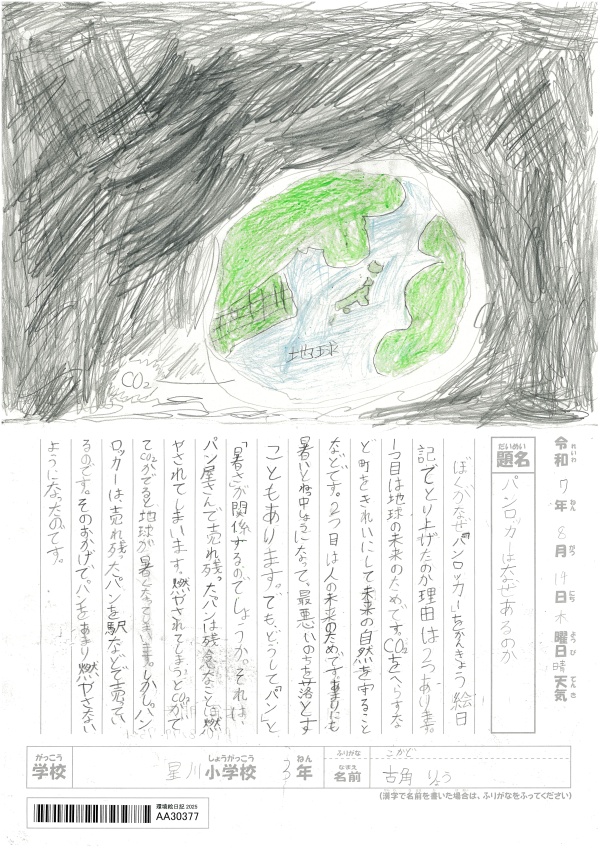 CO₂
地球
令和7年8月14日木曜日晴天気
れいわ ねん がつ にち ようび てんき
だいめい
題名
パンロッカーはなぜあるのか
ぼくがなぜ「パンロッカー」をかんきょう絵日
記でとり上げたのか理由は2つあります。
1つ目は地球の未来のためです。CO₂をへらすな
ど町をきれいにして未来の自然を守ること
などです。2つ目は人の未来のためです。あまりにも
暑いとねっ中しょうになって、最悪いのちを落とす
こともあります。でも、どうして「パン」と
「暑さ」が関係するのでしょうか。それは、
パン屋さんで売れ残ったパンは残念なことに燃
やされてしまいます。燃やされてしまうとCO₂がで
てCO₂がでると地球が暑くなってしまいます。しかし、パン
ロッカーは売れ残ったパンを駅などで売ってい
るのです。そのおかげで、パンをあまり燃やさない
ようになったのです。
がっこう しょうがっこう ねん
学校 星川小学校 3年
ふりがな こかど
なまえ
名前 古角 りょう
(漢字で名前を書いた場合は、ふりがなをふってください)
環境絵日記2025
AA30377